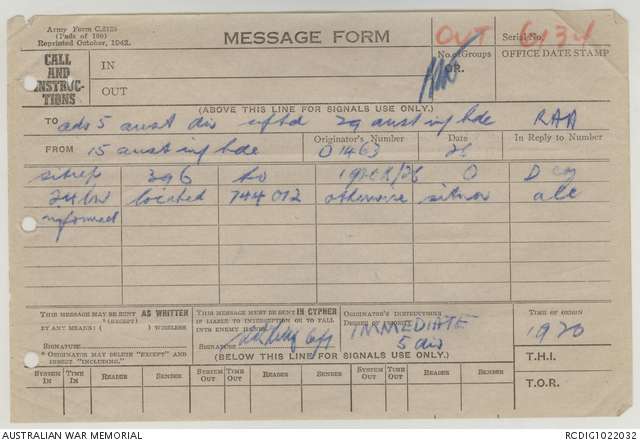 Army Form C.2128
(Pads of 100)
Reprinted October, 1942.
MESSAGE FORM
OUT
Serial No. 6134
CALL AND INSTRUC-TIONS
IN
OUT
No. of Groups
GR.
OFFICE DATE STAMP
(ABOVE THIS LINE FOR SIGNALS USE ONLY.)
TO adv 5 aust div rftd 29 aust inf bde RAA
FROM 15 aust inf bde
Originator's Number
O1463
Date
26
In Reply to Number
sitrep 396 to 1920K/26 O D coy
24 bn located 744012 otherwise sitnor all
informed
THIS MESSAGE MAY BE SENT AS WRITTEN
(EXCEPT)
BY ANY MEANS ( ) WIRELESS
SIGNATURE
* ORIGINATOR MAY DELETE "EXCEPT" AND INSERT "INCLUDING."
THIS MESSAGE MUST BE SENT IN CYPHER
IF LIABLE TO INTERCEPTION OR TO FALL INTO ENEMY HANDS.
SIGNATURE Capt
ORIGINATOR'S INSTRUCTIONS
DEGREE OF PRIORITY
IMMEDIATE
5 div
TIME OF ORIGIN
1920
(BELOW THIS LINE FOR SIGNALS USE ONLY.)
T.H.I.
T.O.R.
SYSTEM IN
TIME IN
READER
SENDER
SYSTEM OUT
TIME OUT
READER
SENDER
SYSTEM OUT
TIME OUT
READER
SENDER
AUSTRALIAN WAR MEMORIAL
RCDIG1022032